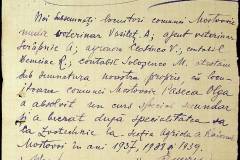 Noi însemnații locuitori comunei Mostovoie
medic veterinar Vasilet A; agent veterinar
Serafinie A; agronom Cerbinco V; contabil
Demciuc R; contabil Sologenco M, atestăm
sub semnătura noastră proprie, că locu-
itoarea comunei Mostovoie Paseca Olga
a absolvit un curs special secundar
și a lucrat după specialitatea sa
ca Zootehnic la secția Agricolă a Raionul
Mostovoi în anii 1937, 1938 și 1939.